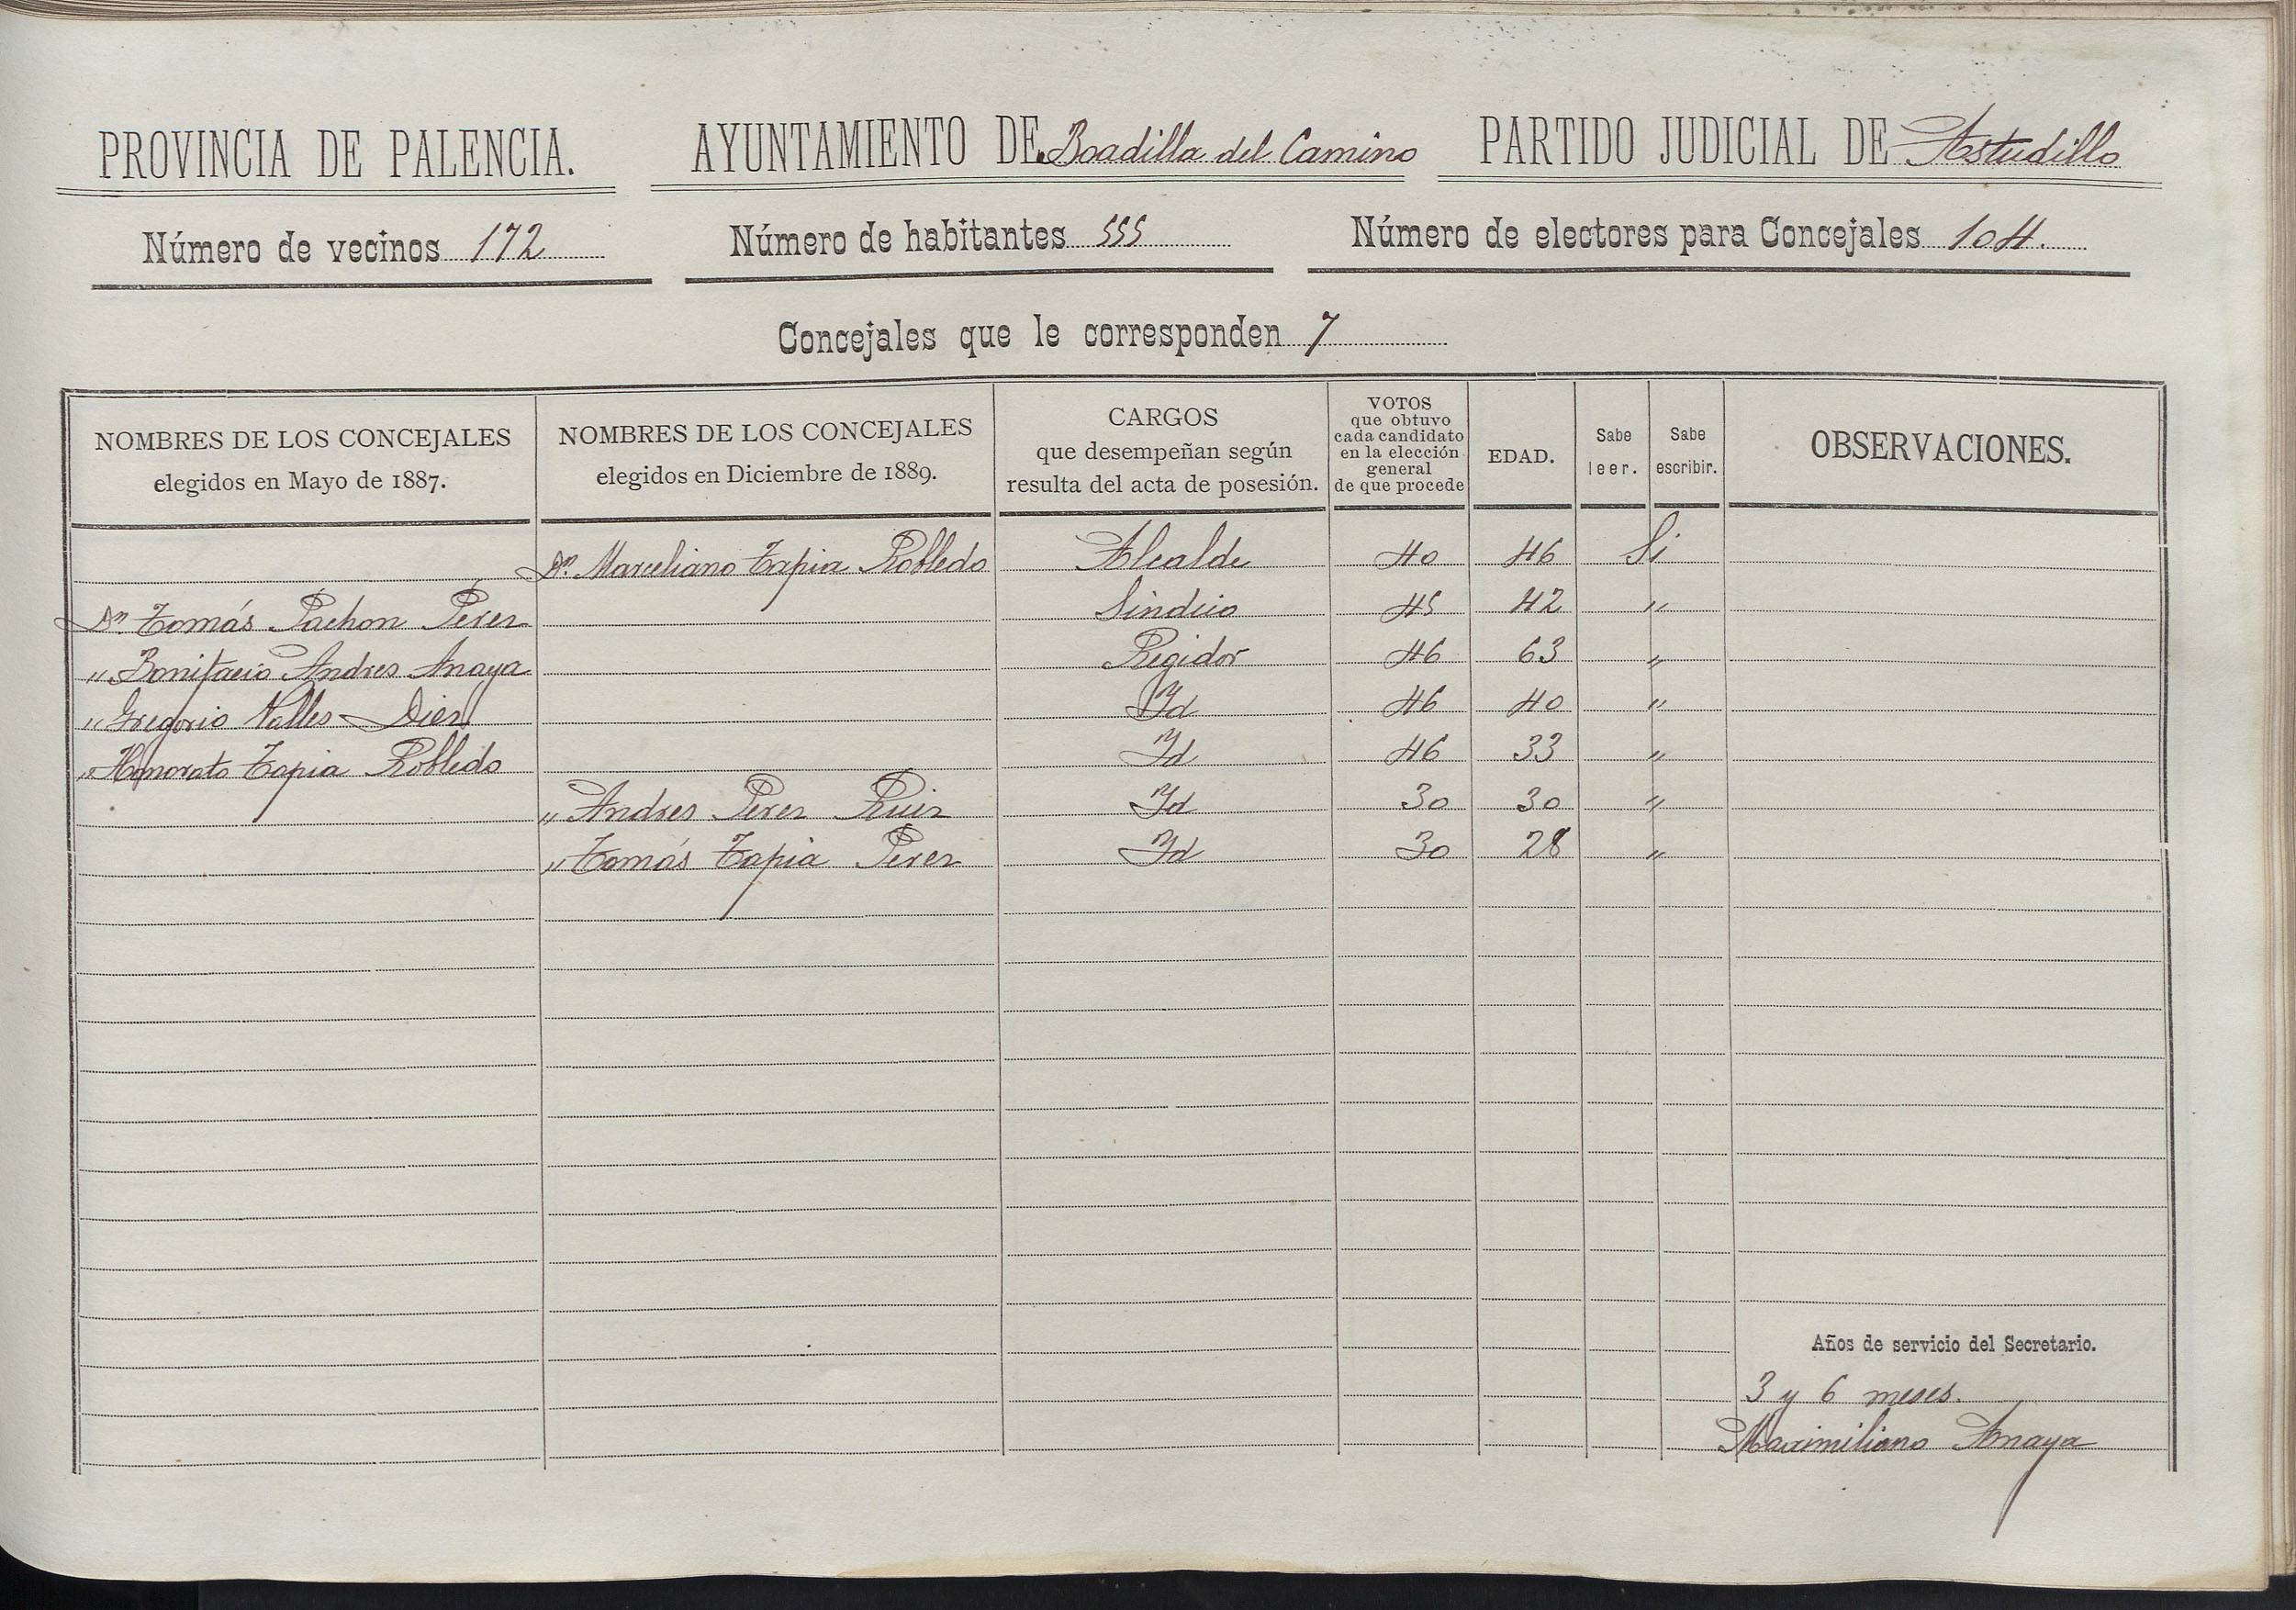 PROVINCIA DE PALENCIA. AYUNTAMIENTO DE Boadilla del Camino PARTIDO JUDICIAL DE Astudillo
Número de vecinos 172 Número de habitantes 555 Número de electores para Concejales 104.
Concejales que le corresponden 7
NOMBRES DE LOS CONCEJALES elegidos en Mayo de 1887. NOMBRES DE LOS CONCEJALES elegidos en Diciembre de 1889. CARGOS que desempeñan según resulta del acta de posesión. VOTOS que obtuvo cada candidato en la elección general de que procede EDAD. Sabe leer. Sabe escribir. OBSERVACIONES.
Dn. Marceliano Tapia Robledo Alcalde 40 46 Si
Dn. Tomás Pachon Perez Sindico 45 42 "
" Bonifacio Andres Anaya Regidor 46 63 "
" Gregorio Valles Diez Id 46 40 "
" Honorato Tapia Robledo Id 46 33 "
" Andres Perez Ruiz Id 30 30 "
" Tomás Tapia Perez Id 30 28 "
Años de servicio del Secretario.
3 y 6 meses.
Maximiliano Anaya